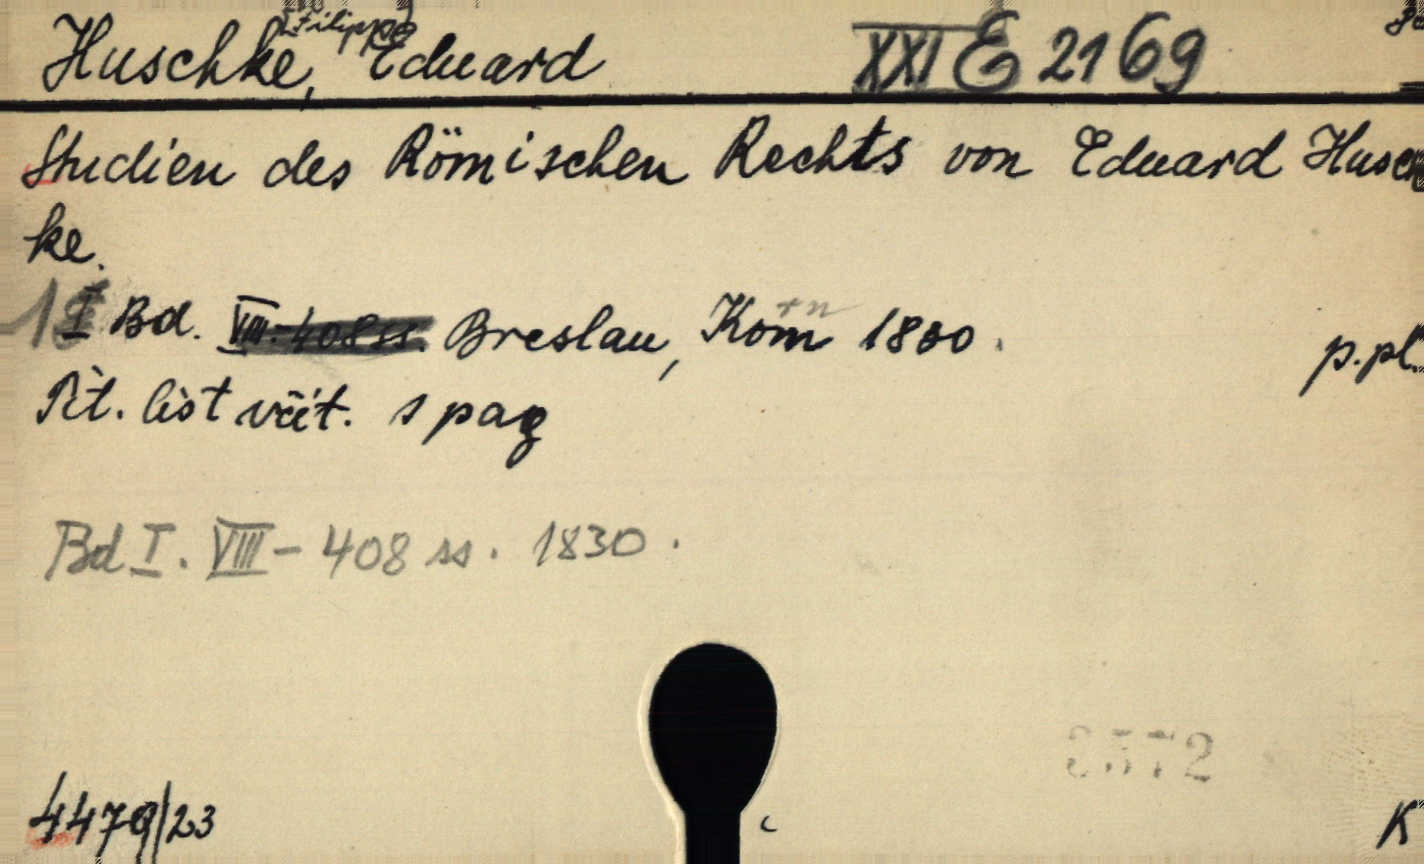 Huschke, Eduard XXI E 2169
Studien des Römischen Rechts von Eduard Husch
ke.
I Bd. VIII-408 ss. Breslau, Kom 1830. p.pl.
Tit. list včít. 1 pag
Bd I. VIII - 408 ss. 1830.
3572
4479/23 K